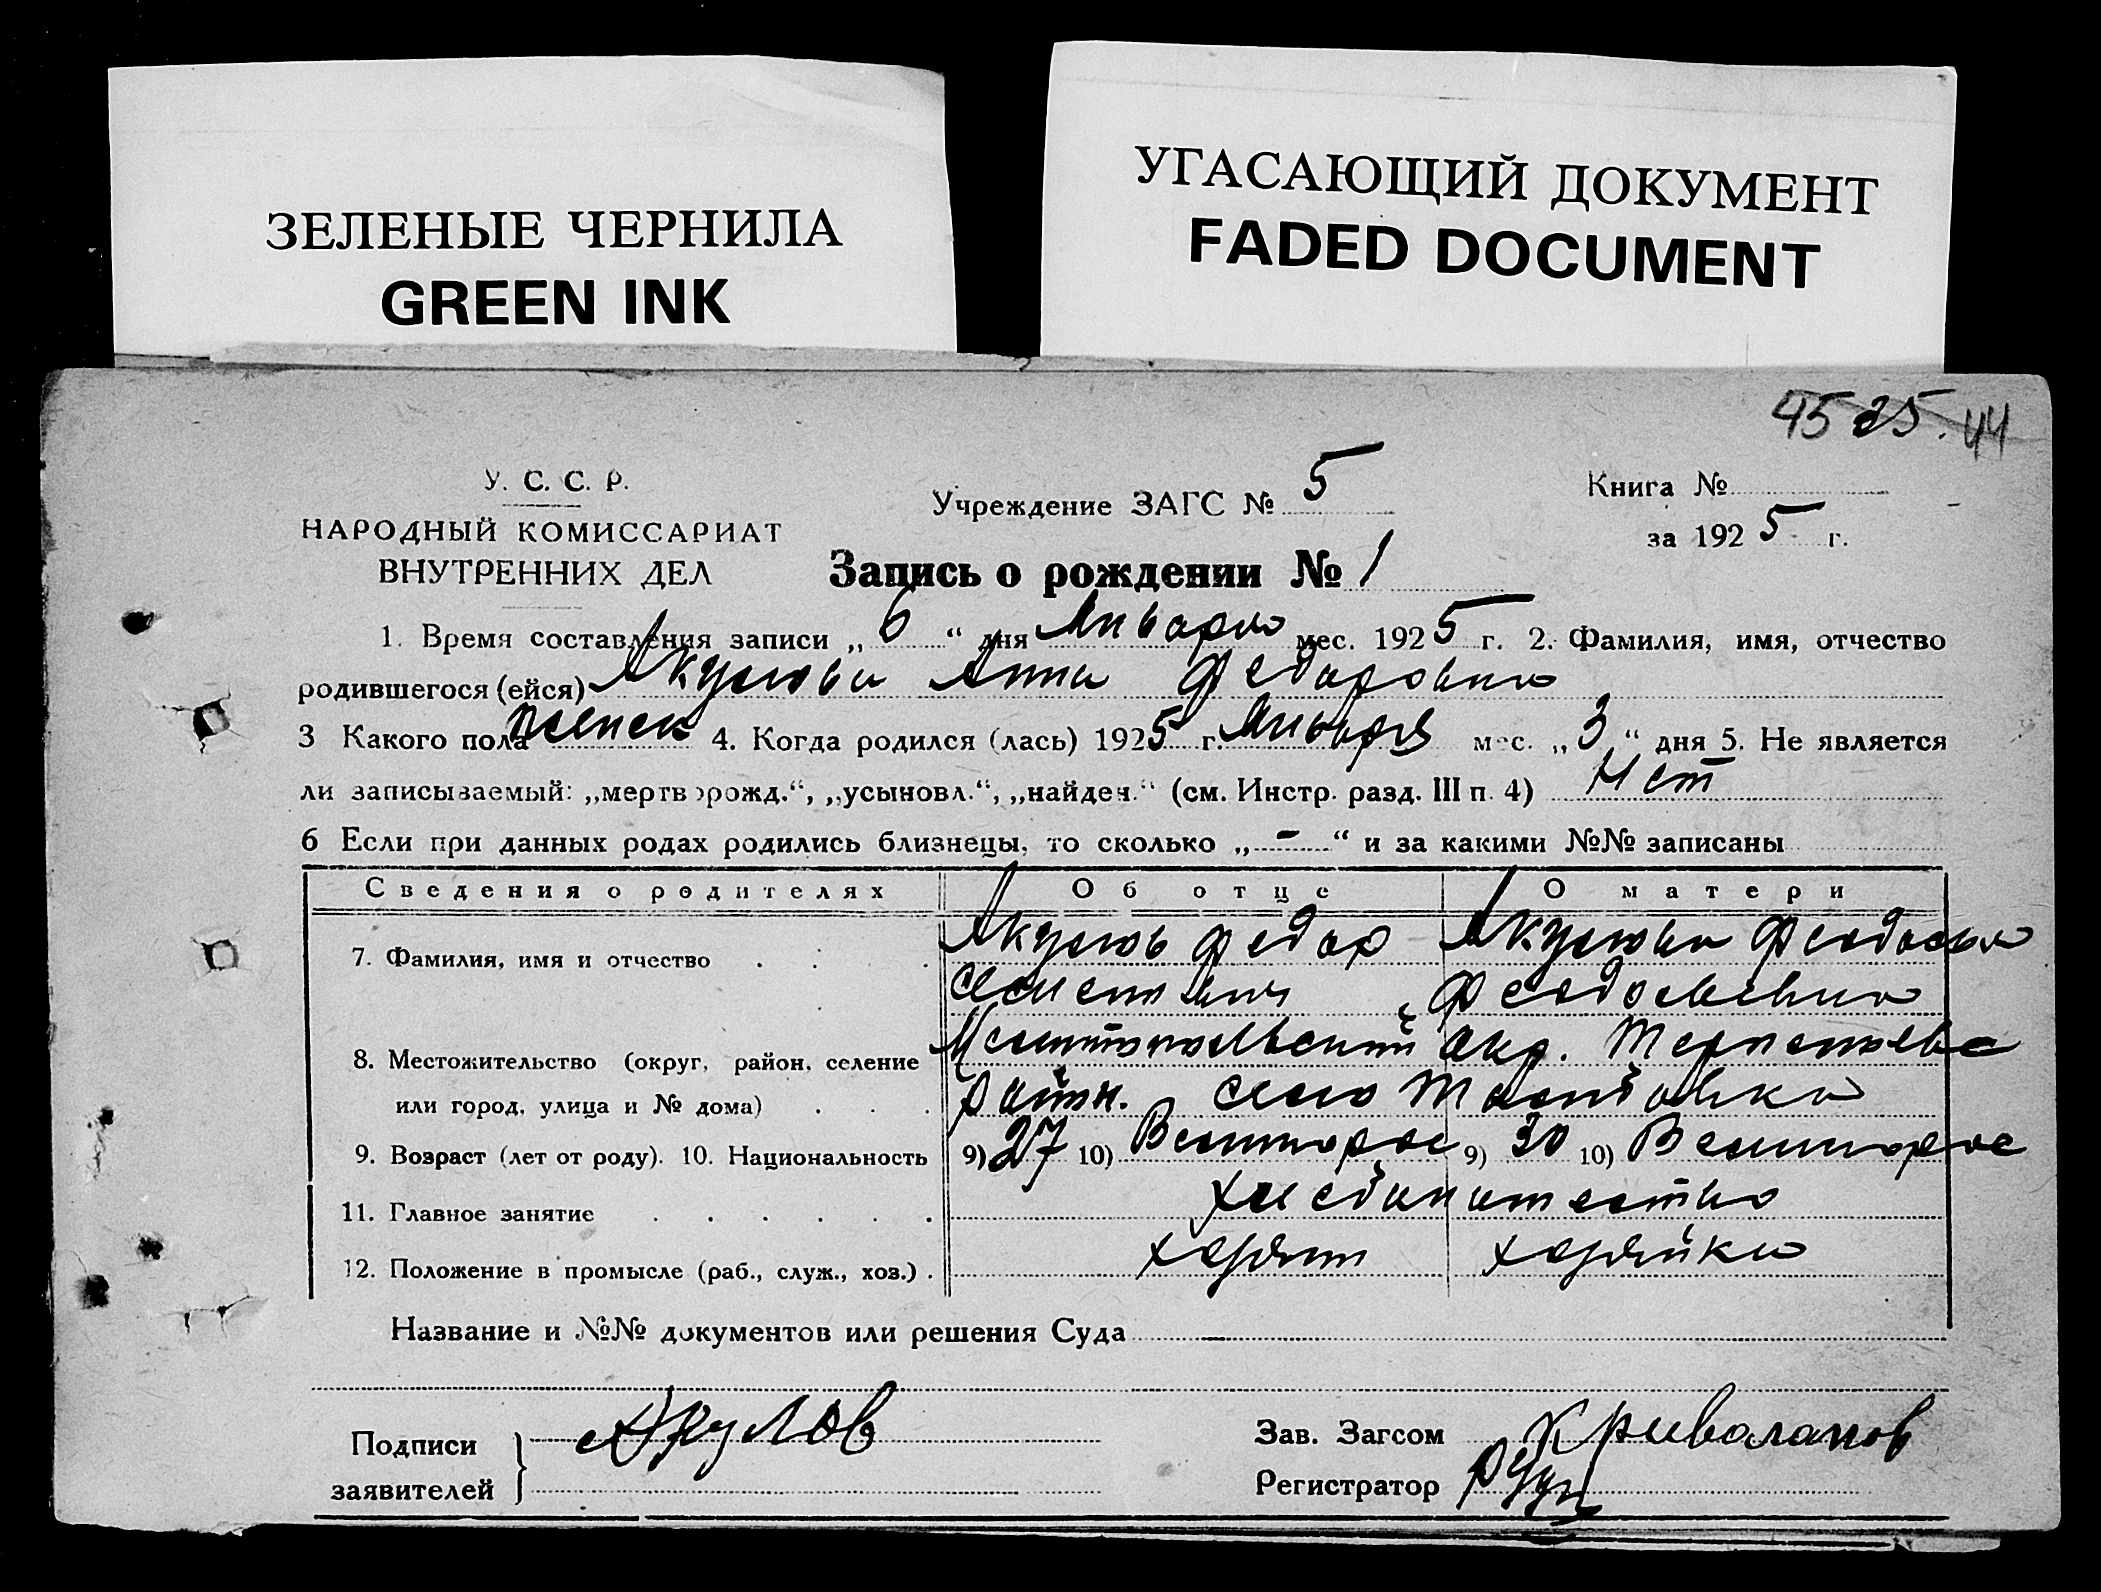 ЗЕЛЕНЫЕ ЧЕРНИЛА
GREEN INK
УГАСАЮЩИЙ ДОКУМЕНТ
FADED DOCUMENT
45 25. 44
У. С. С. Р.
НАРОДНЫЙ КОМИССАРИАТ
ВНУТРЕННИХ ДЕЛ
Учреждение ЗАГС № 5
Книга №
за 1925 г.
Запись о рождении № 1
1. Время составления записи „6“ дня Января мес. 1925 г. 2. Фамилия, имя, отчество
родившегося (ейся) Акулова Анна Федоровна
3 Какого пола женск 4. Когда родился (лась) 1925 г. Января мес. „3“ дня 5. Не является
ли записываемый: „мертворожд.“, „усыновл.“, „найден.“ (см. Инстр. разд. III п. 4) Нет
6 Если при данных родах родились близнецы, то сколько „-“ и за какими №№ записаны
Сведения о родителях Об отце О матери
7. Фамилия, имя и отчество Акулов Федор Акулова Феодосья
Феодосьевна
8. Местожительство (округ, район, селение Мелитопольский окр.
или город, улица и № дома) район. село
9. Возраст (лет от роду). 10. Национальность 9) 27 10) 9) 30 10)
11. Главное занятие хлебопашество
12. Положение в промысле (раб., служ., хоз.) хозяин хозяйка
Название и №№ документов или решения Суда —
Подписи
заявителей
Акулов
Зав. Загсом Криволапов
Регистратор